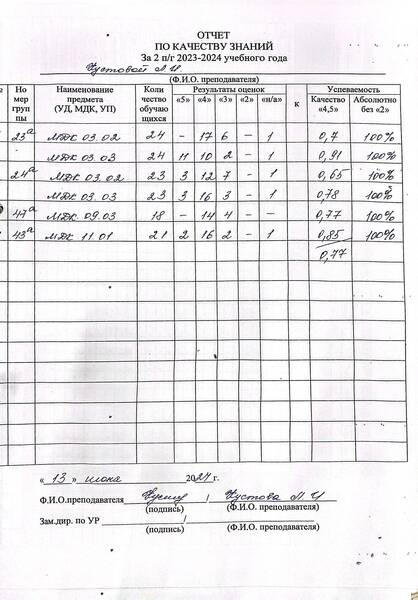 ОТЧЕТ
ПО КАЧЕСТВУ ЗНАНИЙ
За 2 п/г 2023-2024 учебного года
(Ф.И.О. преподавателя)
№ Но мер груп пы Наименование предмета (УД, МДК, УП) Коли чество обучаю щихся Результаты оценок «5» «4» «3» «2» «н/а» К Успеваемость Качество «4,5» Абсолютно без «2»
23а МДК 03.02 24 - 17 6 - 1 0,7 100%
МДК 03.03 24 11 10 2 - 1 0,91 100%
24а МДК 03.02 23 3 12 7 - 1 0,65 100%
МДК 03.03 23 3 16 3 - 1 0,78 100%
47а МДК 09.03 18 - 14 4 - - 0,77 100%
43а МДК 11.01 21 2 16 2 - 1 0,85 100%
0,77
« 13 » июня 2024 г.
Ф.И.О.преподавателя / Кустова Л. И
(подпись) (Ф.И.О. преподавателя)
Зам.дир. по УР /
(подпись) (Ф.И.О. преподавателя)